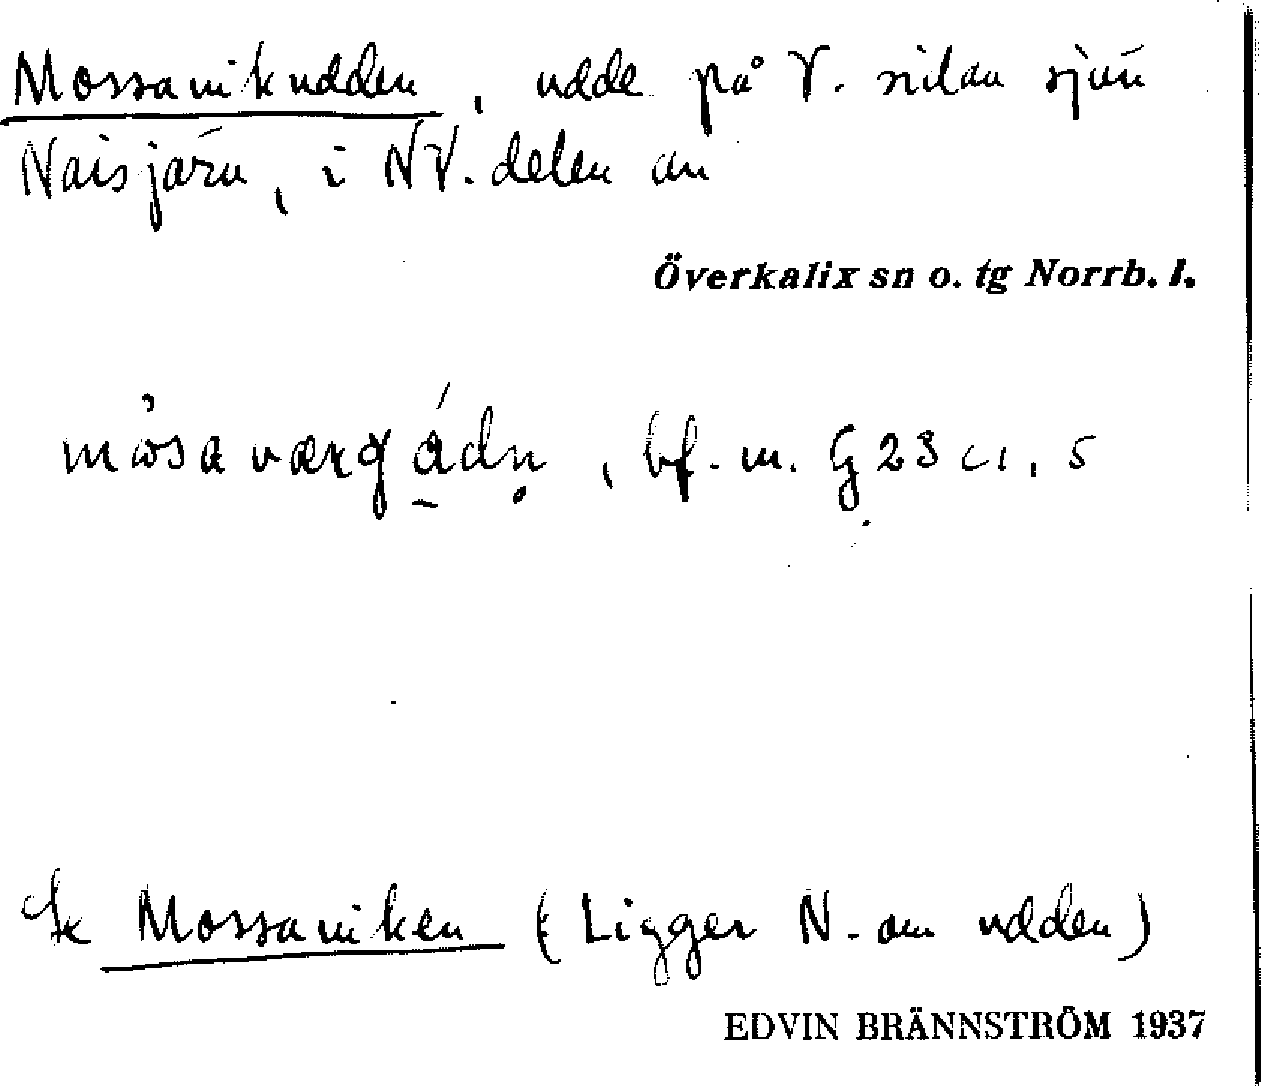 Mossavikudden, udde på V. sidan sjön
Naisjärv, i NV. delen av
Överkalix sn o. tg Norrb. l.
mɷ̀sa værgádṇ, bf. m. G 23 c1, 5
Se Mossaviken (Ligger N. om udden)
EDVIN BRÄNNSTRÖM 1937